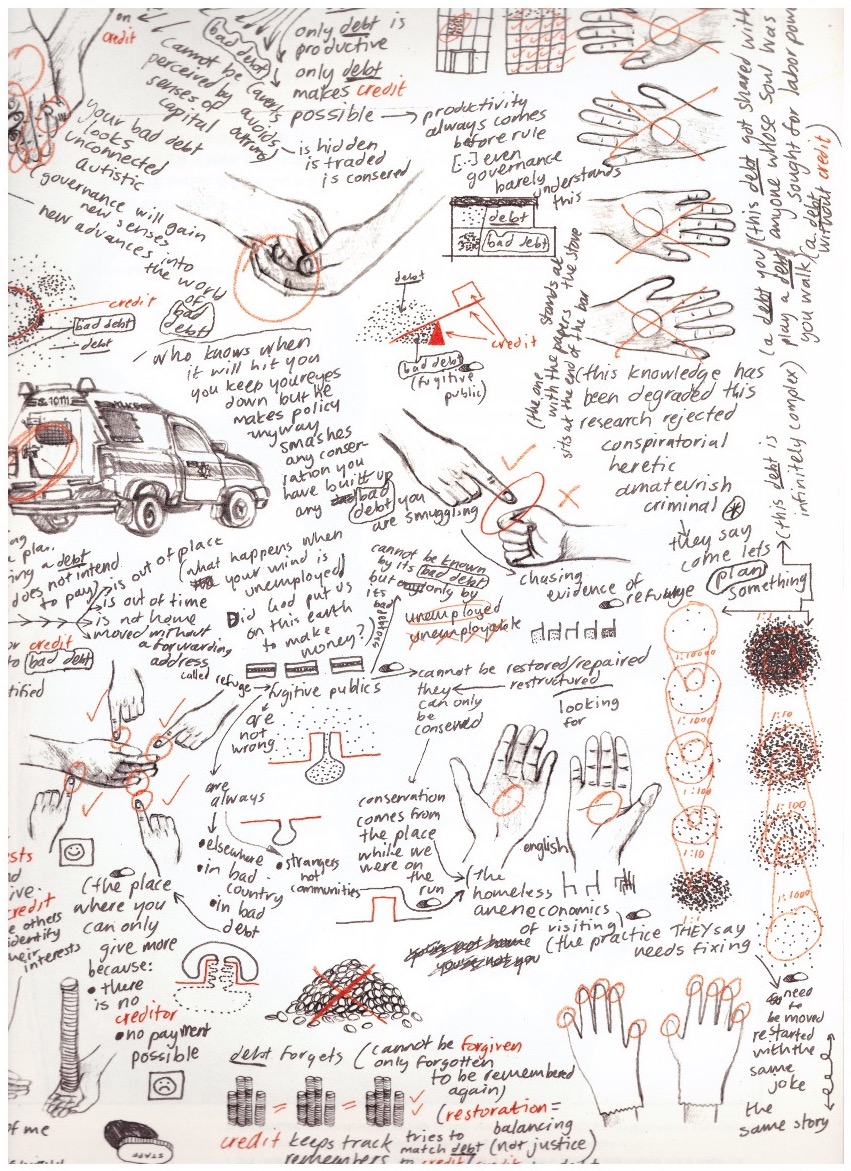 on
credit
cannot be
perceived by
senses of
capital
bad debt
(averts
avoids
outruns)
only debt is
productive
only debt
makes credit
possible → productivity
always comes
before rule
[..] even
governance
barely understands
this
is hidden
is traded
is conserved
your bad debt
looks
unconnected
autistic
(governance will gain
new senses
new advances into
the world
of
bad
debt)
debt
bad debt
credit
bad debt
debt
debt
credit
bad debt
(fugitive
public)
(a debt you play a debt you walk
(this debt got shared with
anyone whose soul was
sought for labor power
(a debt
without credit)
(the one
with the papers
stands at
the stove
sits at the end of the bar
(this knowledge has
been degraded this
research rejected
conspiratorial
heretic
amateurish
criminal
they say
come lets
plan
something
(this debt is
infinitely complex)
who knows when
it will hit you
you keep your eyes
down but he
makes policy
anyway
smashes
any conser-
ration you
have built up
any bad
debt you
are smuggling
10111
a plan.
a debt
does not intend
to pay)
is out of place
is out of time
is not home
moved without
a forwarding
address
or credit
to bad debt
(what happens when
your mind is
unemployed)
Did God put us
on this earth
to make
money?)
cannot be known
by its bad debt
but only by
its
bad
debtors
chasing
evidence of refuge
unemployed
unemployable
called refuge
fugitive publics
are
not
wrong
are
always
• elsewhere
• in bad
country
• in bad
debt
• strangers
not
communities
cannot be restored/repaired
restructured
they
can only
be
conserved
looking
for
conservation
comes from
the place
while we
were on
the
run
english
(the
homeless
aneneconomics
of visiting)
(the practice THEY say
needs fixing
you're not home
you're not you
1:10000
1:1000
1:100
1:10
1:1
1:1
1:10
1:100
1:1000
credit
others
identify
their
interests
(the place
where you
can only
give more
because:
• there
is no
creditor
• no payment
possible
debt forgets (cannot be forgiven
only forgotten
to be remembered
again)
(restoration =
balancing
(not justice)
credit keeps track
remembers
tries to
match debt
to credit
need
to
be moved
restarted
with the
same
joke
the
same story
of me